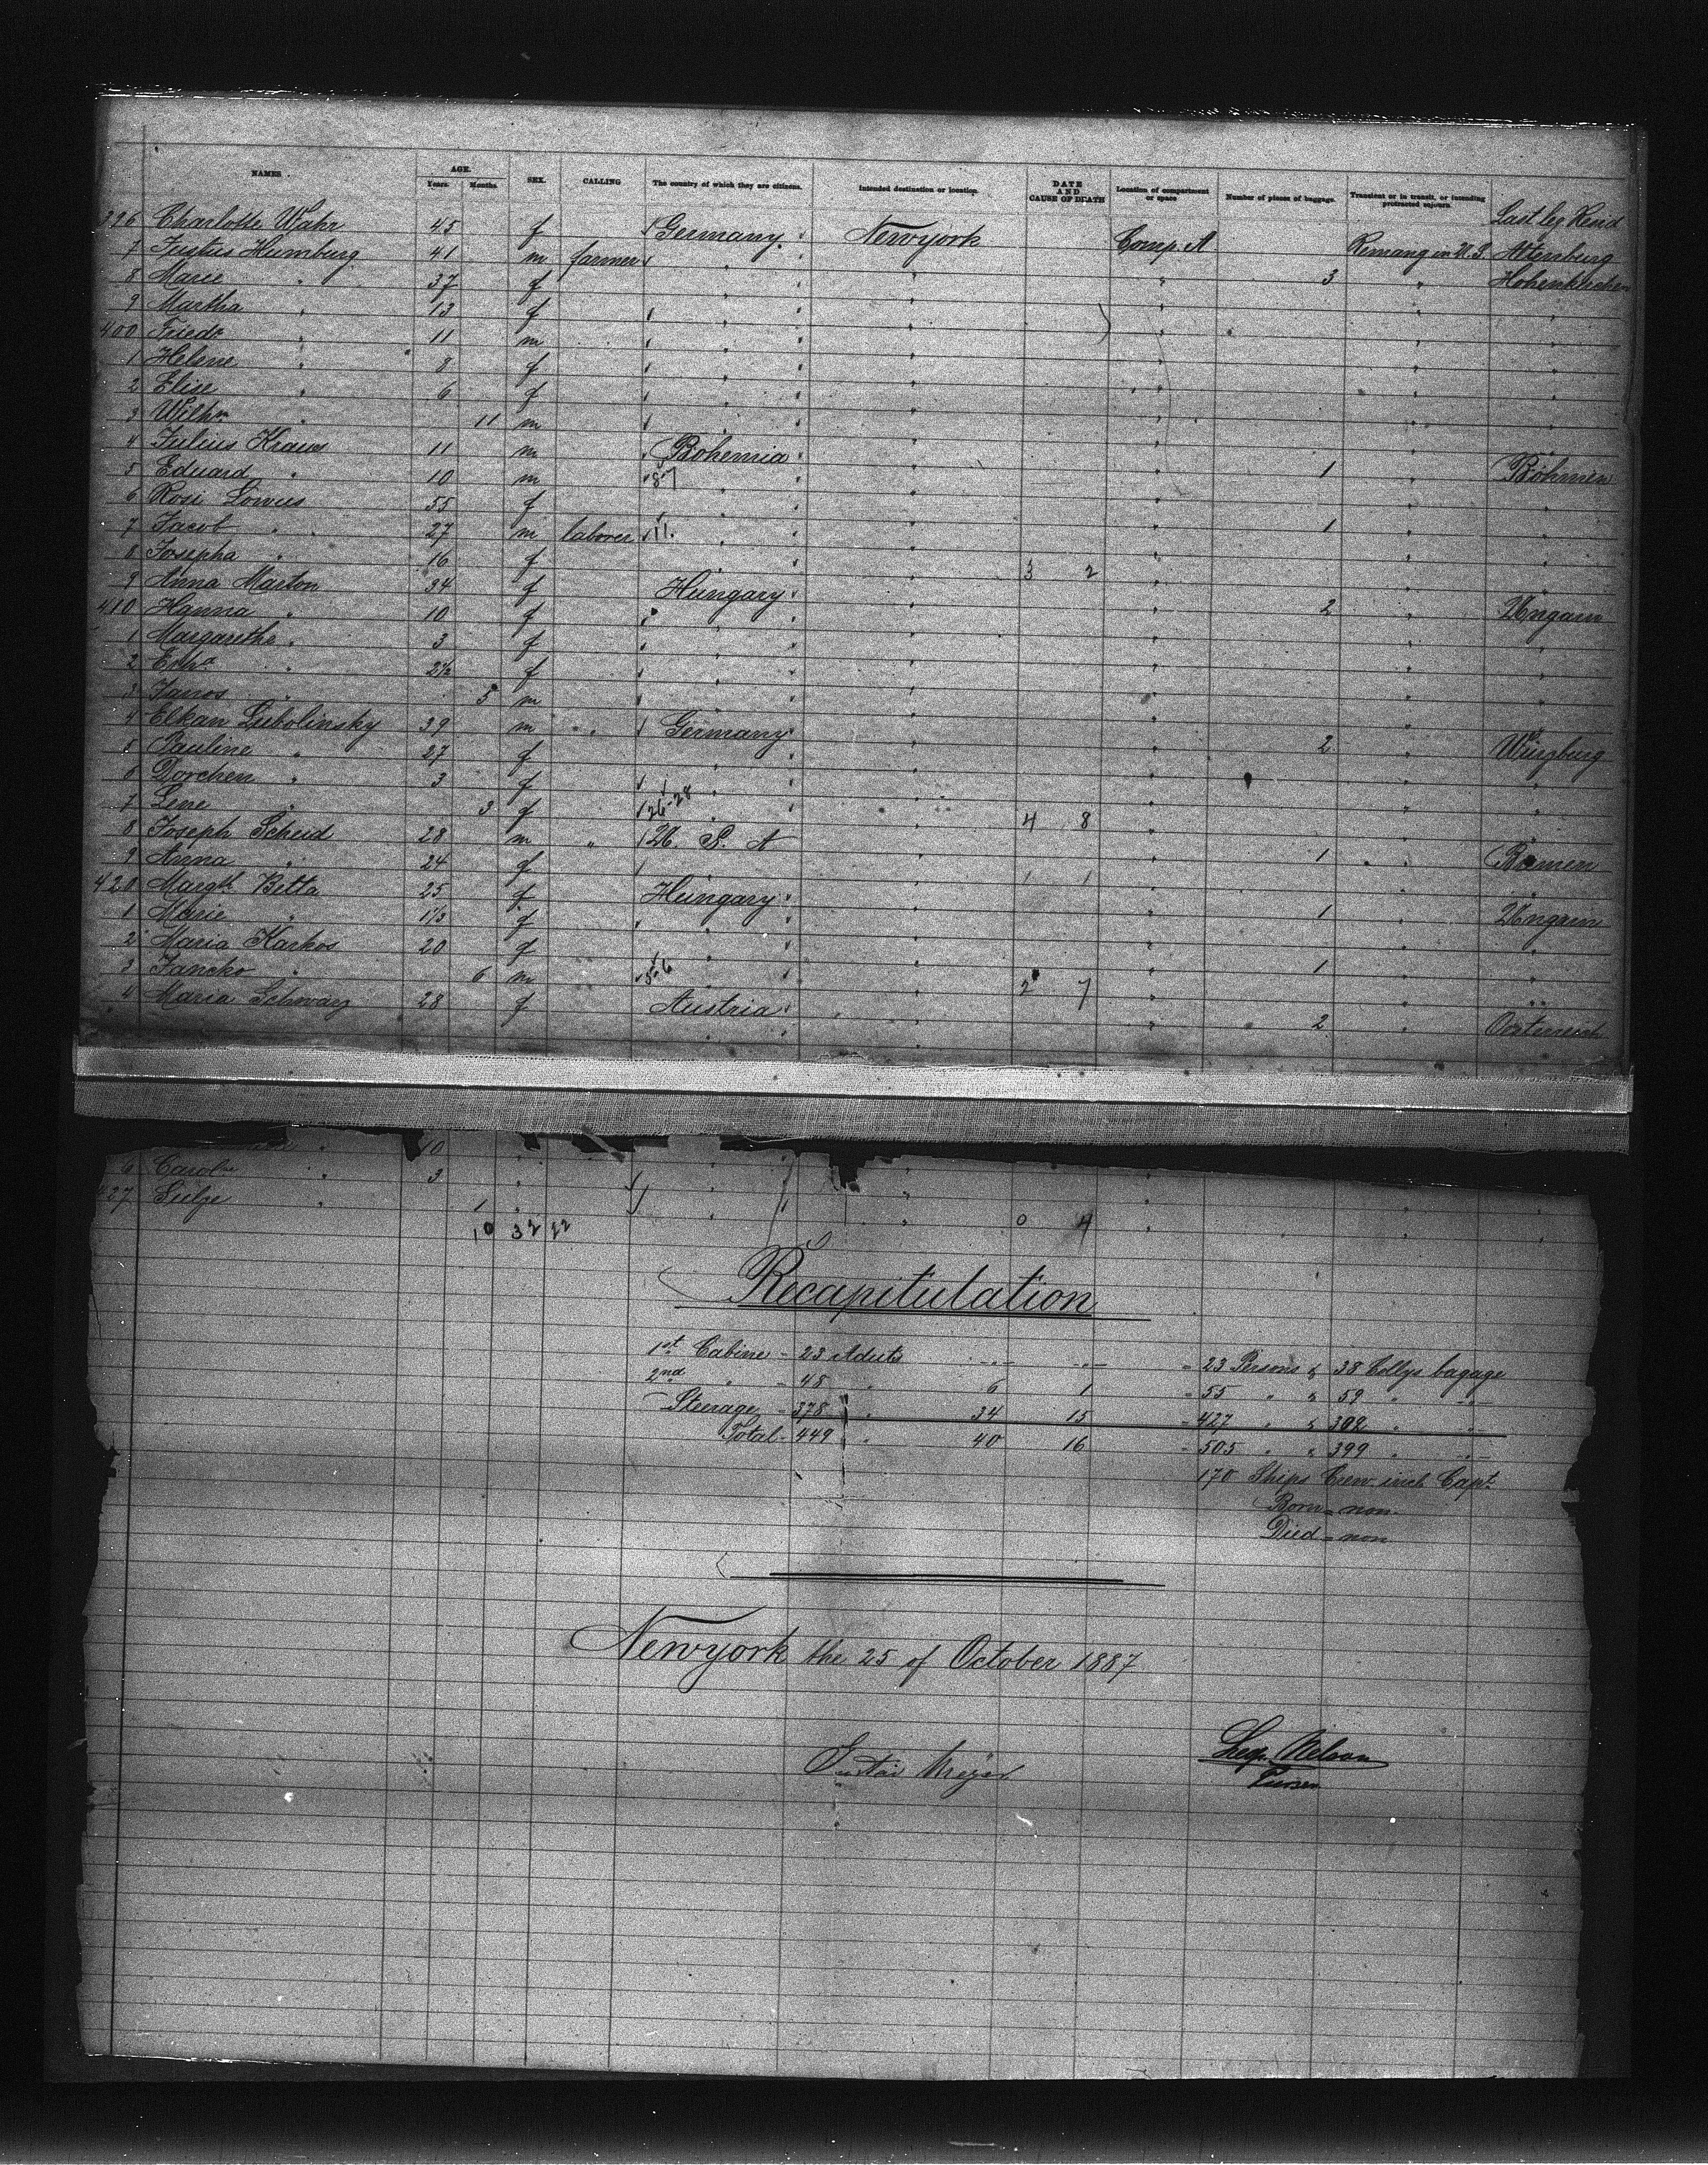 NAMES AGE. Years Months SEX. CALLING The country of which they are citizens. Intended destination or location. DATE AND CAUSE OF DEATH Location of compartment or space Number of pieces of baggage. Transient or in transit, or intending protracted sojourn.
396 Charlotte Wahr 45 f Germany Newyork Comp. A in U.S. Altenburg
7 Justus Humburg 41 m farmer 3 Hohenkirchen
8 Marie " 37 f
9 Martha " 13 f
400 Friedr " 11 m
1 Helene " 8 f
2 Elise " 6 f
3 Wilhm " 11 m
4 Julius Kraus 11 m Bohemia 1 Böhmen
5 Eduard " 10 m 87
6 Rosi 55 f 1
7 Jacob " 27 m laborer 11.
8 Josepha " 16 f 3 2
9 Anna Marton 34 f Hungary 2 Ungarn
410 Hanna " 10 f
1 Margarethe " 3 f
2 " 2½ f
3 Janos " 5 m
4 Elkan Lubolinsky 39 m " Germany 2 Würzburg
5 Pauline " 27 f
6 Dorchen " 3 f
7 Lene " 3 f 26-28 4 8
8 Joseph Scheid 28 m " U. S. A 1 Bremen
9 Anna " 24 f 1 1
420 Margth Betta 25 f Hungary 1 Ungarn
1 Marie " 1/3 f
2 Maria Karkos 20 f 1
3 Jancko " 6 m 5-6 2 7
4 Maria Schwarz 28 f Austria 2
10
6 Carolne " 3
427 " 1
10 32 22 0 4
Recapitulation
1st Cabine - 23 Adults -"- -"- - 23 Persons & 38 Collys bagage
2nd " - 48 " 6 1 - 55 " & 59 " -"-
Steerage - 378 " 34 15 - 427 " & 302 " "
Total - 449 " 40 16 - 505 " & 399 " "
170 Ships Crew incl. Capt.
Born - non.
Died - non
Newyork the 25 of October 1887
Gustav Meyer
Nelson
Purser